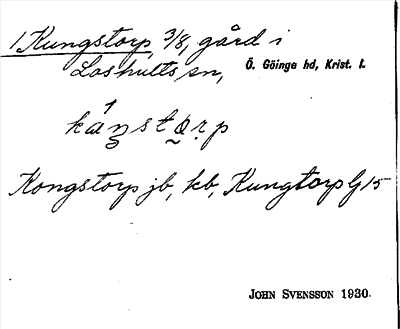 1 Kungstorp, 3/8, gård i
Loshults sn, Ö. Göinge hd, Krist. l.
káŋstɑrp
Kongstorp jb, kb, Kungtorp Gj 15
JOHN SVENSSON 1930.